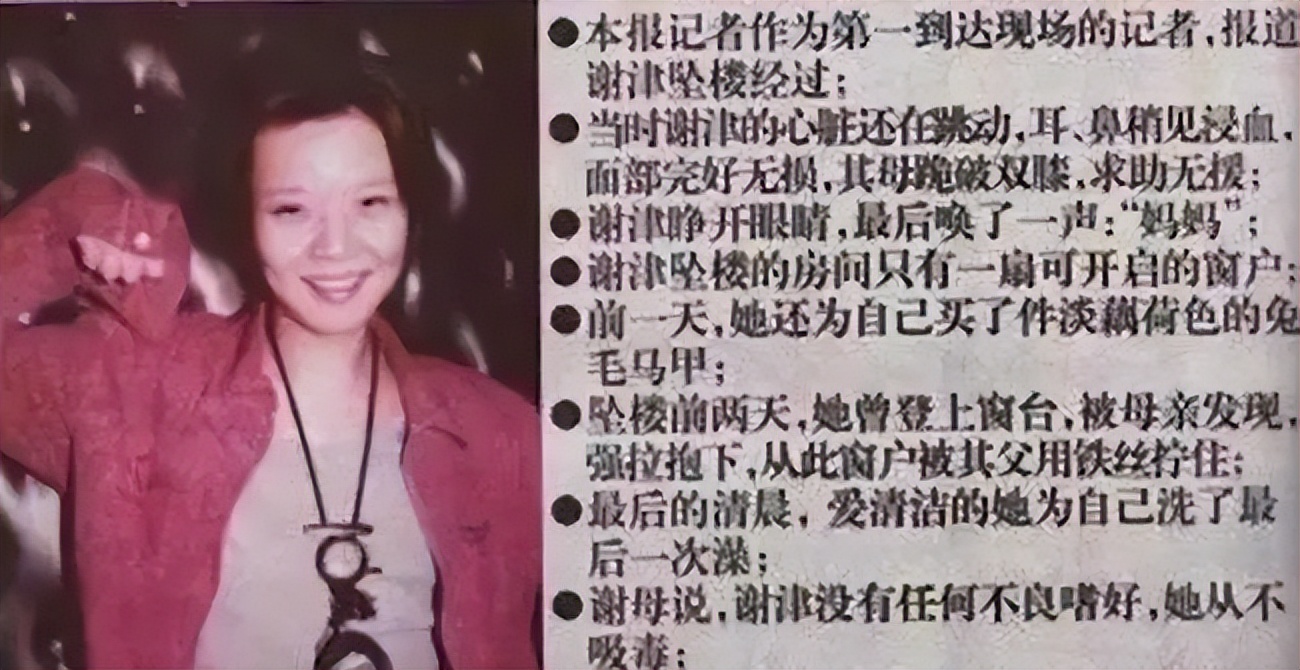 ●本报记者作为第一到达现场的记者,报道
谢津坠楼经过;
●当时谢津的心脏还在跳动,耳、鼻稍见浸血,
面部完好无损,其母跪破双膝,求助无援;
●谢津睁开眼睛,最后唤了一声:“妈妈”;
●谢津坠楼的房间只有一扇可开启的窗户;
●前一天,她还为自己买了件淡藕荷色的兔
毛马甲;
●坠楼前两天,她曾登上窗台,被母亲发现,
强拉抱下,从此窗户被其父用铁丝拧住;
●最后的清晨,爱清洁的她为自己洗了最
后一次澡;
●谢母说,谢津没有任何不良嗜好,她从不
吸毒;